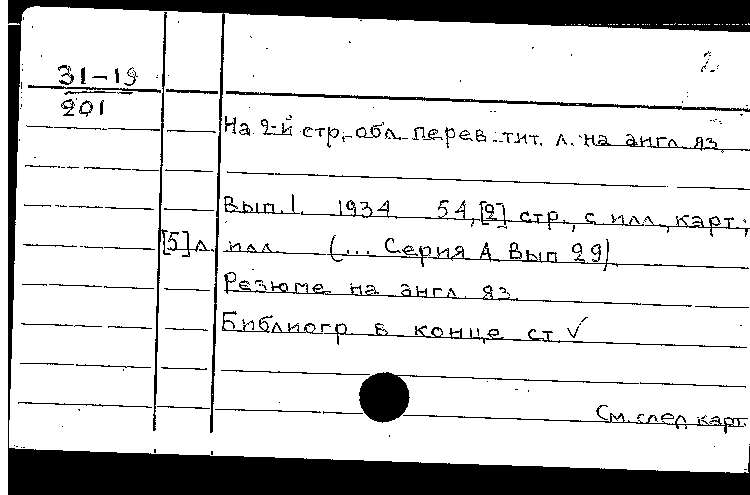 2
31-19
201
На 2-й стр. обл. перев. тит. л. на англ. яз.
Вып. 1. 1934 54,[2] стр., с илл., карт.;
[5] л. илл. (... Серия А Вып 29)
Резюме на англ. яз.
Библиогр в конце ст. ✓
См. след карт.